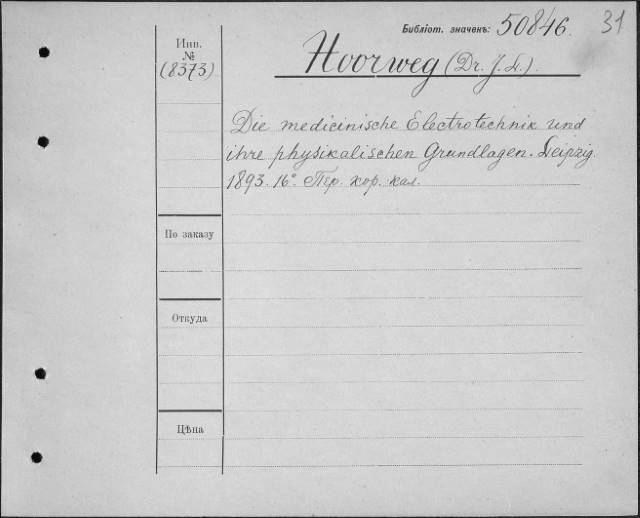 Библіот. значекъ: 50846. 31
Инв. №
(8373)
Hoorweg (Dr. J. L.).
Die medicinische Electrotechnik und
ihre physikalischen Grundlagen. Leipzig.
1893. 16° Пер. кор. кал.
По заказу
Откуда
Цѣна